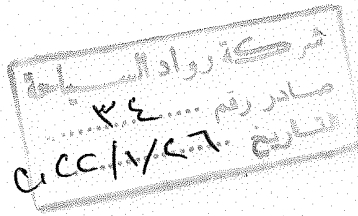 شركة رواد السياحة
صادر رقم ٣٤
التاريخ ٢٠٢٢/١/٢٦